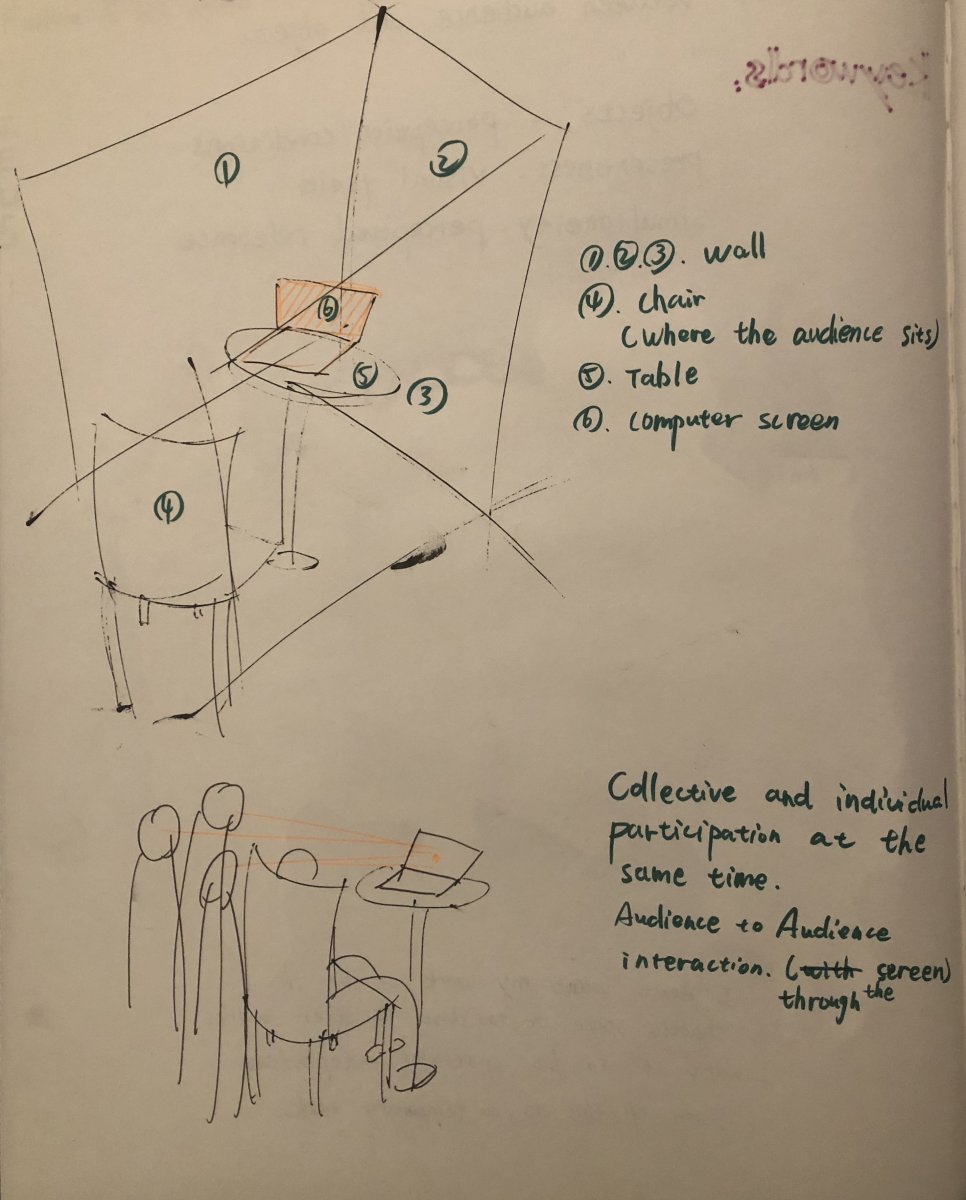 Keywords:
①
②
⑥
⑤
③
④
①.②.③. wall
④. chair
(where the audience sits)
⑤. Table
⑥. computer screen
Collective and individual
participation at the
same time.
Audience to Audience
interaction. (with screen)
through the